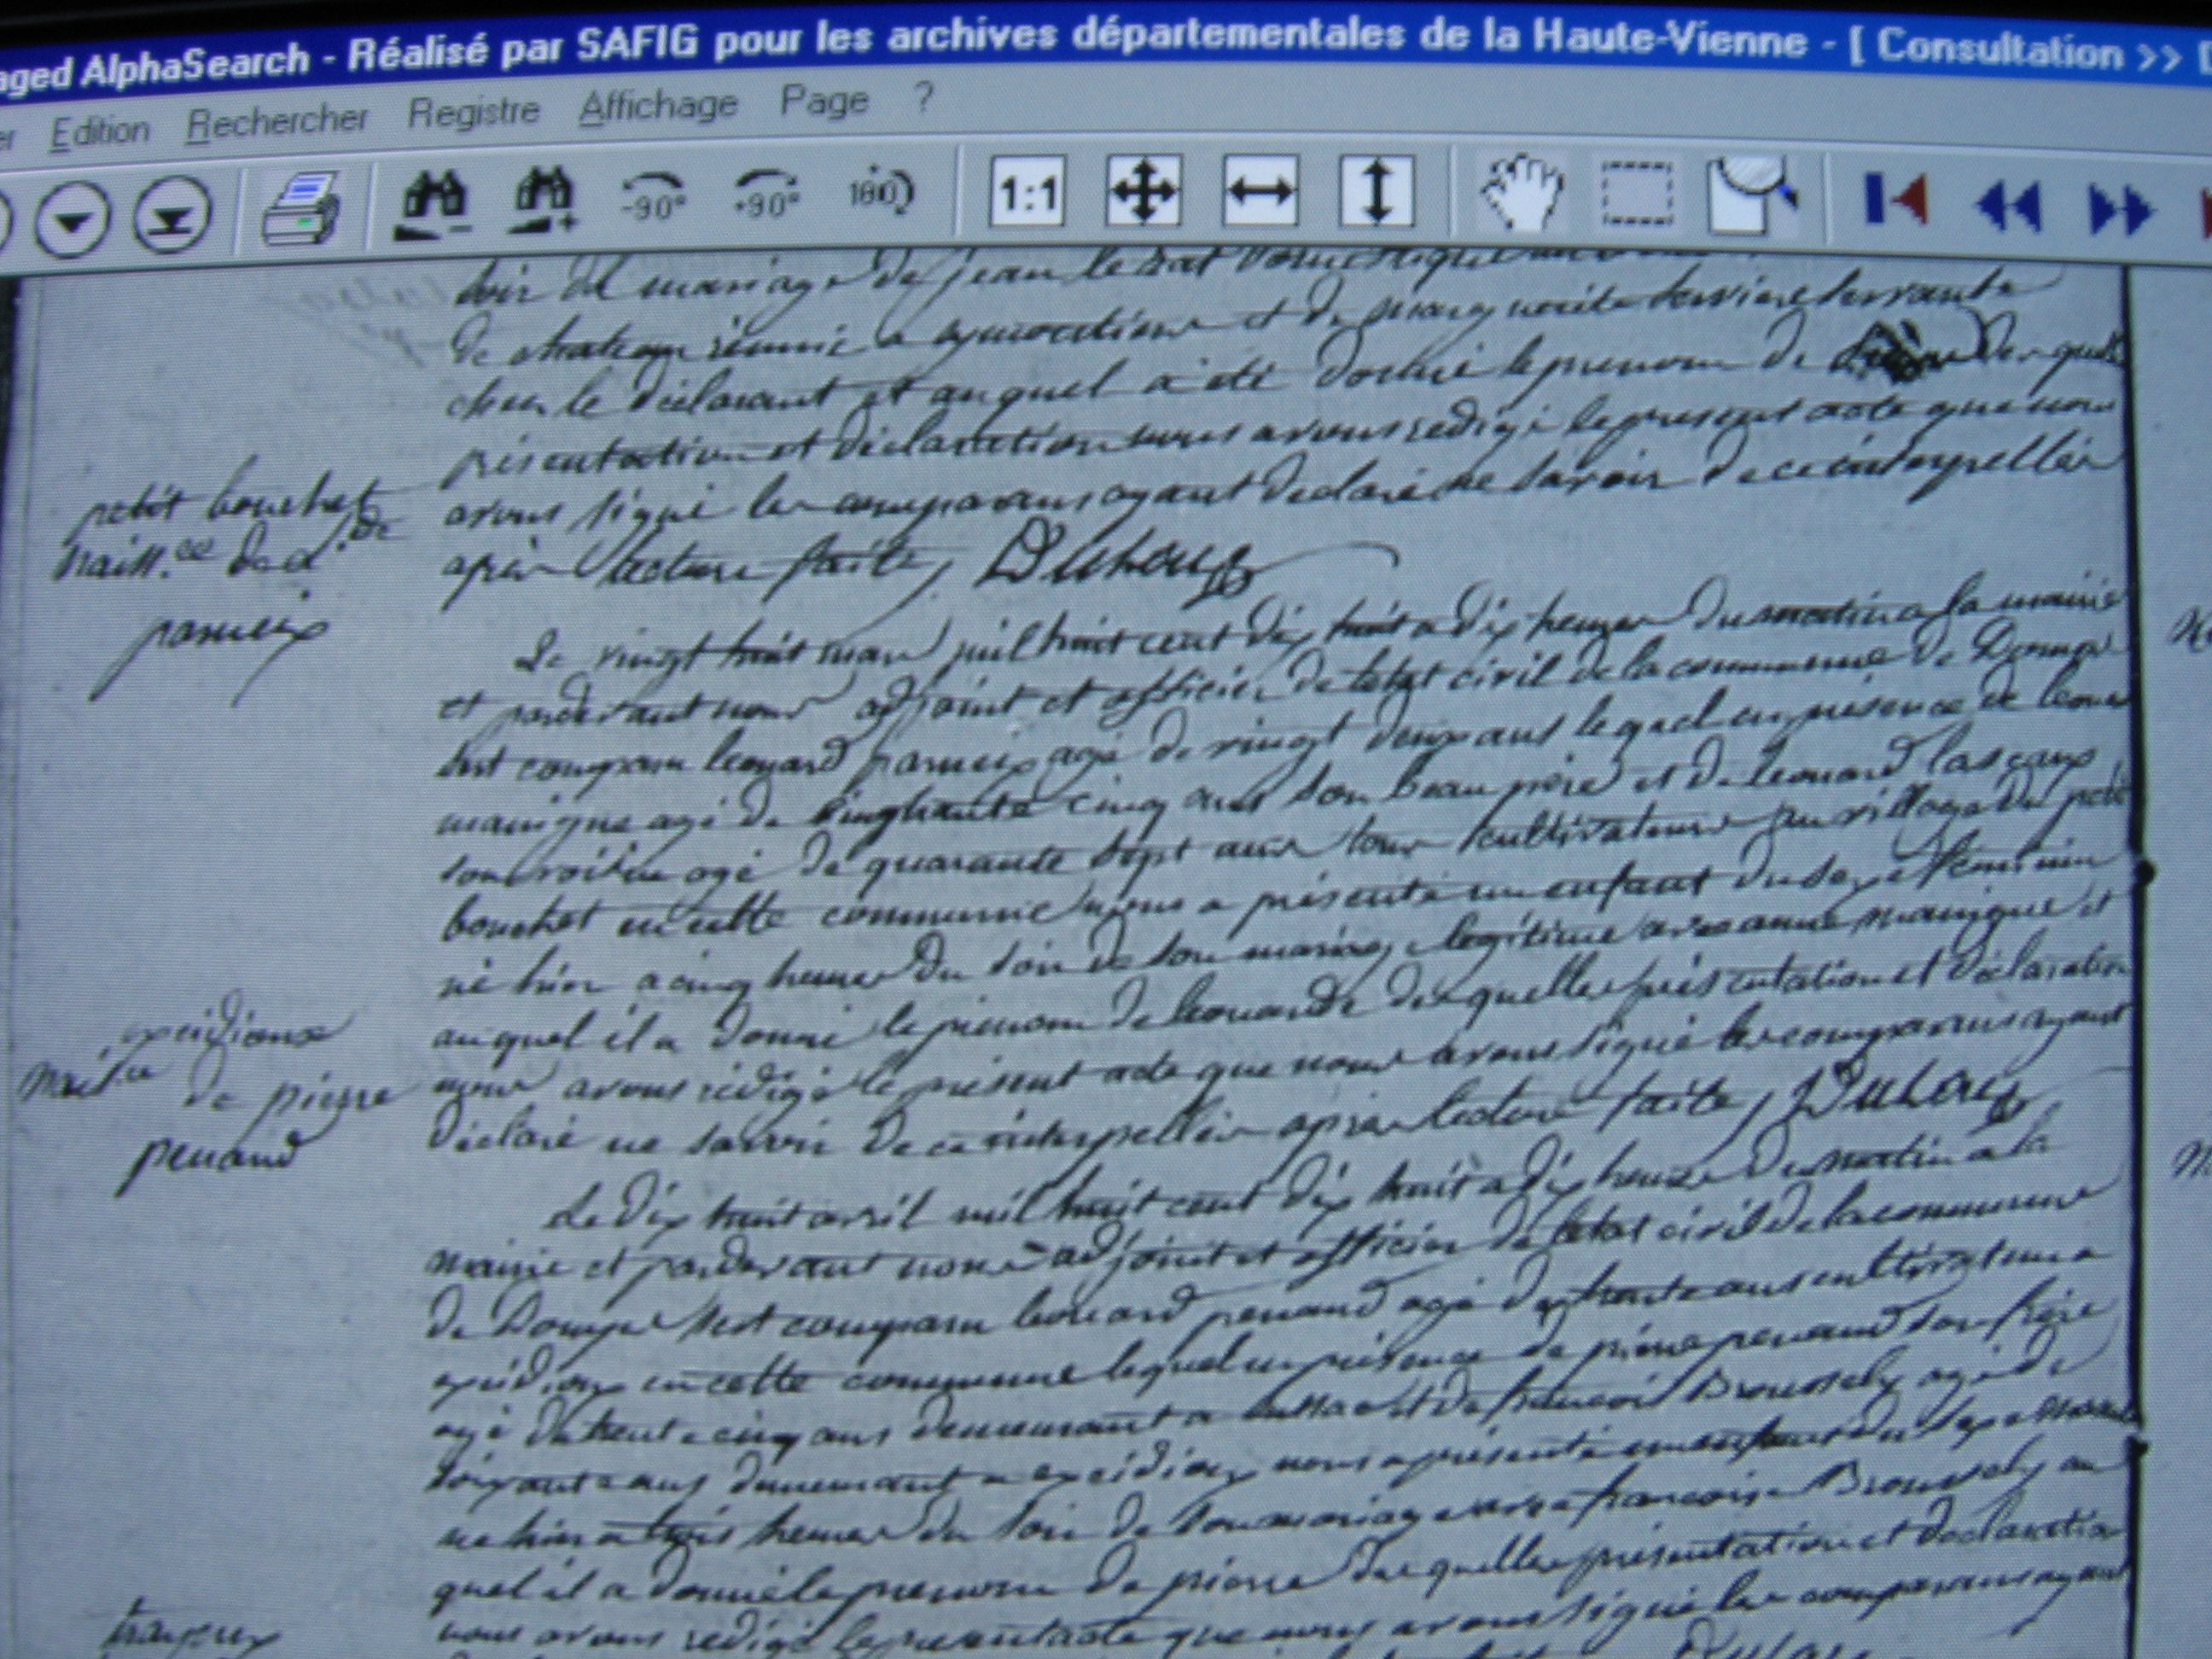 aged AlphaSearch - Réalisé par SAFIG pour les archives départementales de la Haute-Vienne - [ Consultation >>
er Edition Rechercher Registre Affichage Page ?
-90° +90° 180 1:1
soir du mariage de jean
de et de marguerite servante
chez le déclarant et auquel a été donné le prenom de
présentation et déclaration nous avons redigé le present acte que nous
avons signé les comparans ayant declaré ne savoir de ce interpellés
après lecture faite,
petit bouchet
naiss.ce de
parneix
Le vingt huit mars mil huit cent dix huit a dix heures du matin a la mairie
et pardevant nous adjoint et officier de letat civil de la commune de
est comparu leonard parneix agé de vingt deux ans lequel en présence de
agé de cinq ans son beau père et de leonard lascaux
son voisin agé de quarante sept ans tous cultivateurs au village du petit
bouchet en cette commune nous a présenté un enfant du sexe féminin
né hier a cinq heures du soir de son mariage légitime avec anne manigne et
auquel il a donné le prenom de leonarde desquelles présentation et déclaration
nous avons rédigé le présent acte que nous avons signé les comparans ayant
déclaré ne savoir de ce interpellés après lecture faite,
naiss.ce de pierre
penaud
Le dix huit avril mil huit cent dix huit a dix heures du matin a la
mairie et pardevant nous adjoint et officier de letat civil de la commune
de est comparu leonard penaud agé de trente ans cultivateur a
en cette commune lequel en présence de pierre penaud son frère
agé de trente cinq ans demeurant a et de françois Broussely agé de
soixante ans demeurant a nous a présenté un enfant du sexe
né hier a trois heures du soir de son mariage avec françoise Broussely au
quel il a donné le prenom de pierre desquelles présentation et déclaration
nous avons redigé le present acte que nous avons signé les comparans ayant